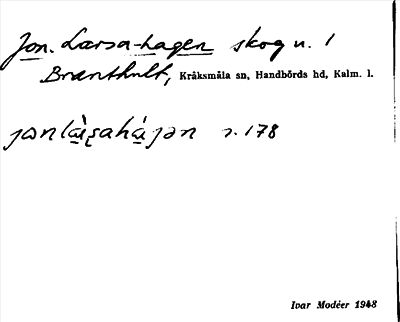 Jon. Larsa-hagen skog n. 1
Branthult, Kråksmåla sn, Handbörds hd, Kalm. l.
s. 178
Ivar Modéer 1943